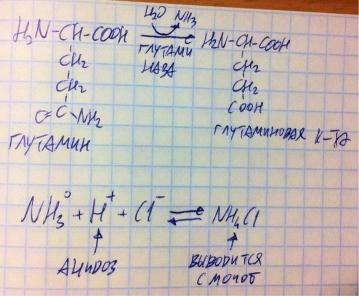 H₂O NH₃
H₂N-CH-COOH ГЛУТАМИ H₂N-CH-COOH
НАЗА
CH₂ CH₂
CH₂ CH₂
O=C NH₂ COOH
ГЛУТАМИН ГЛУТАМИНОВАЯ К-ТА
NH₃⁰ + H⁺ + Cl⁻ ⇌ NH₄Cl
АЦИДОЗ ВЫВОДИТСЯ
С МОЧОЙ